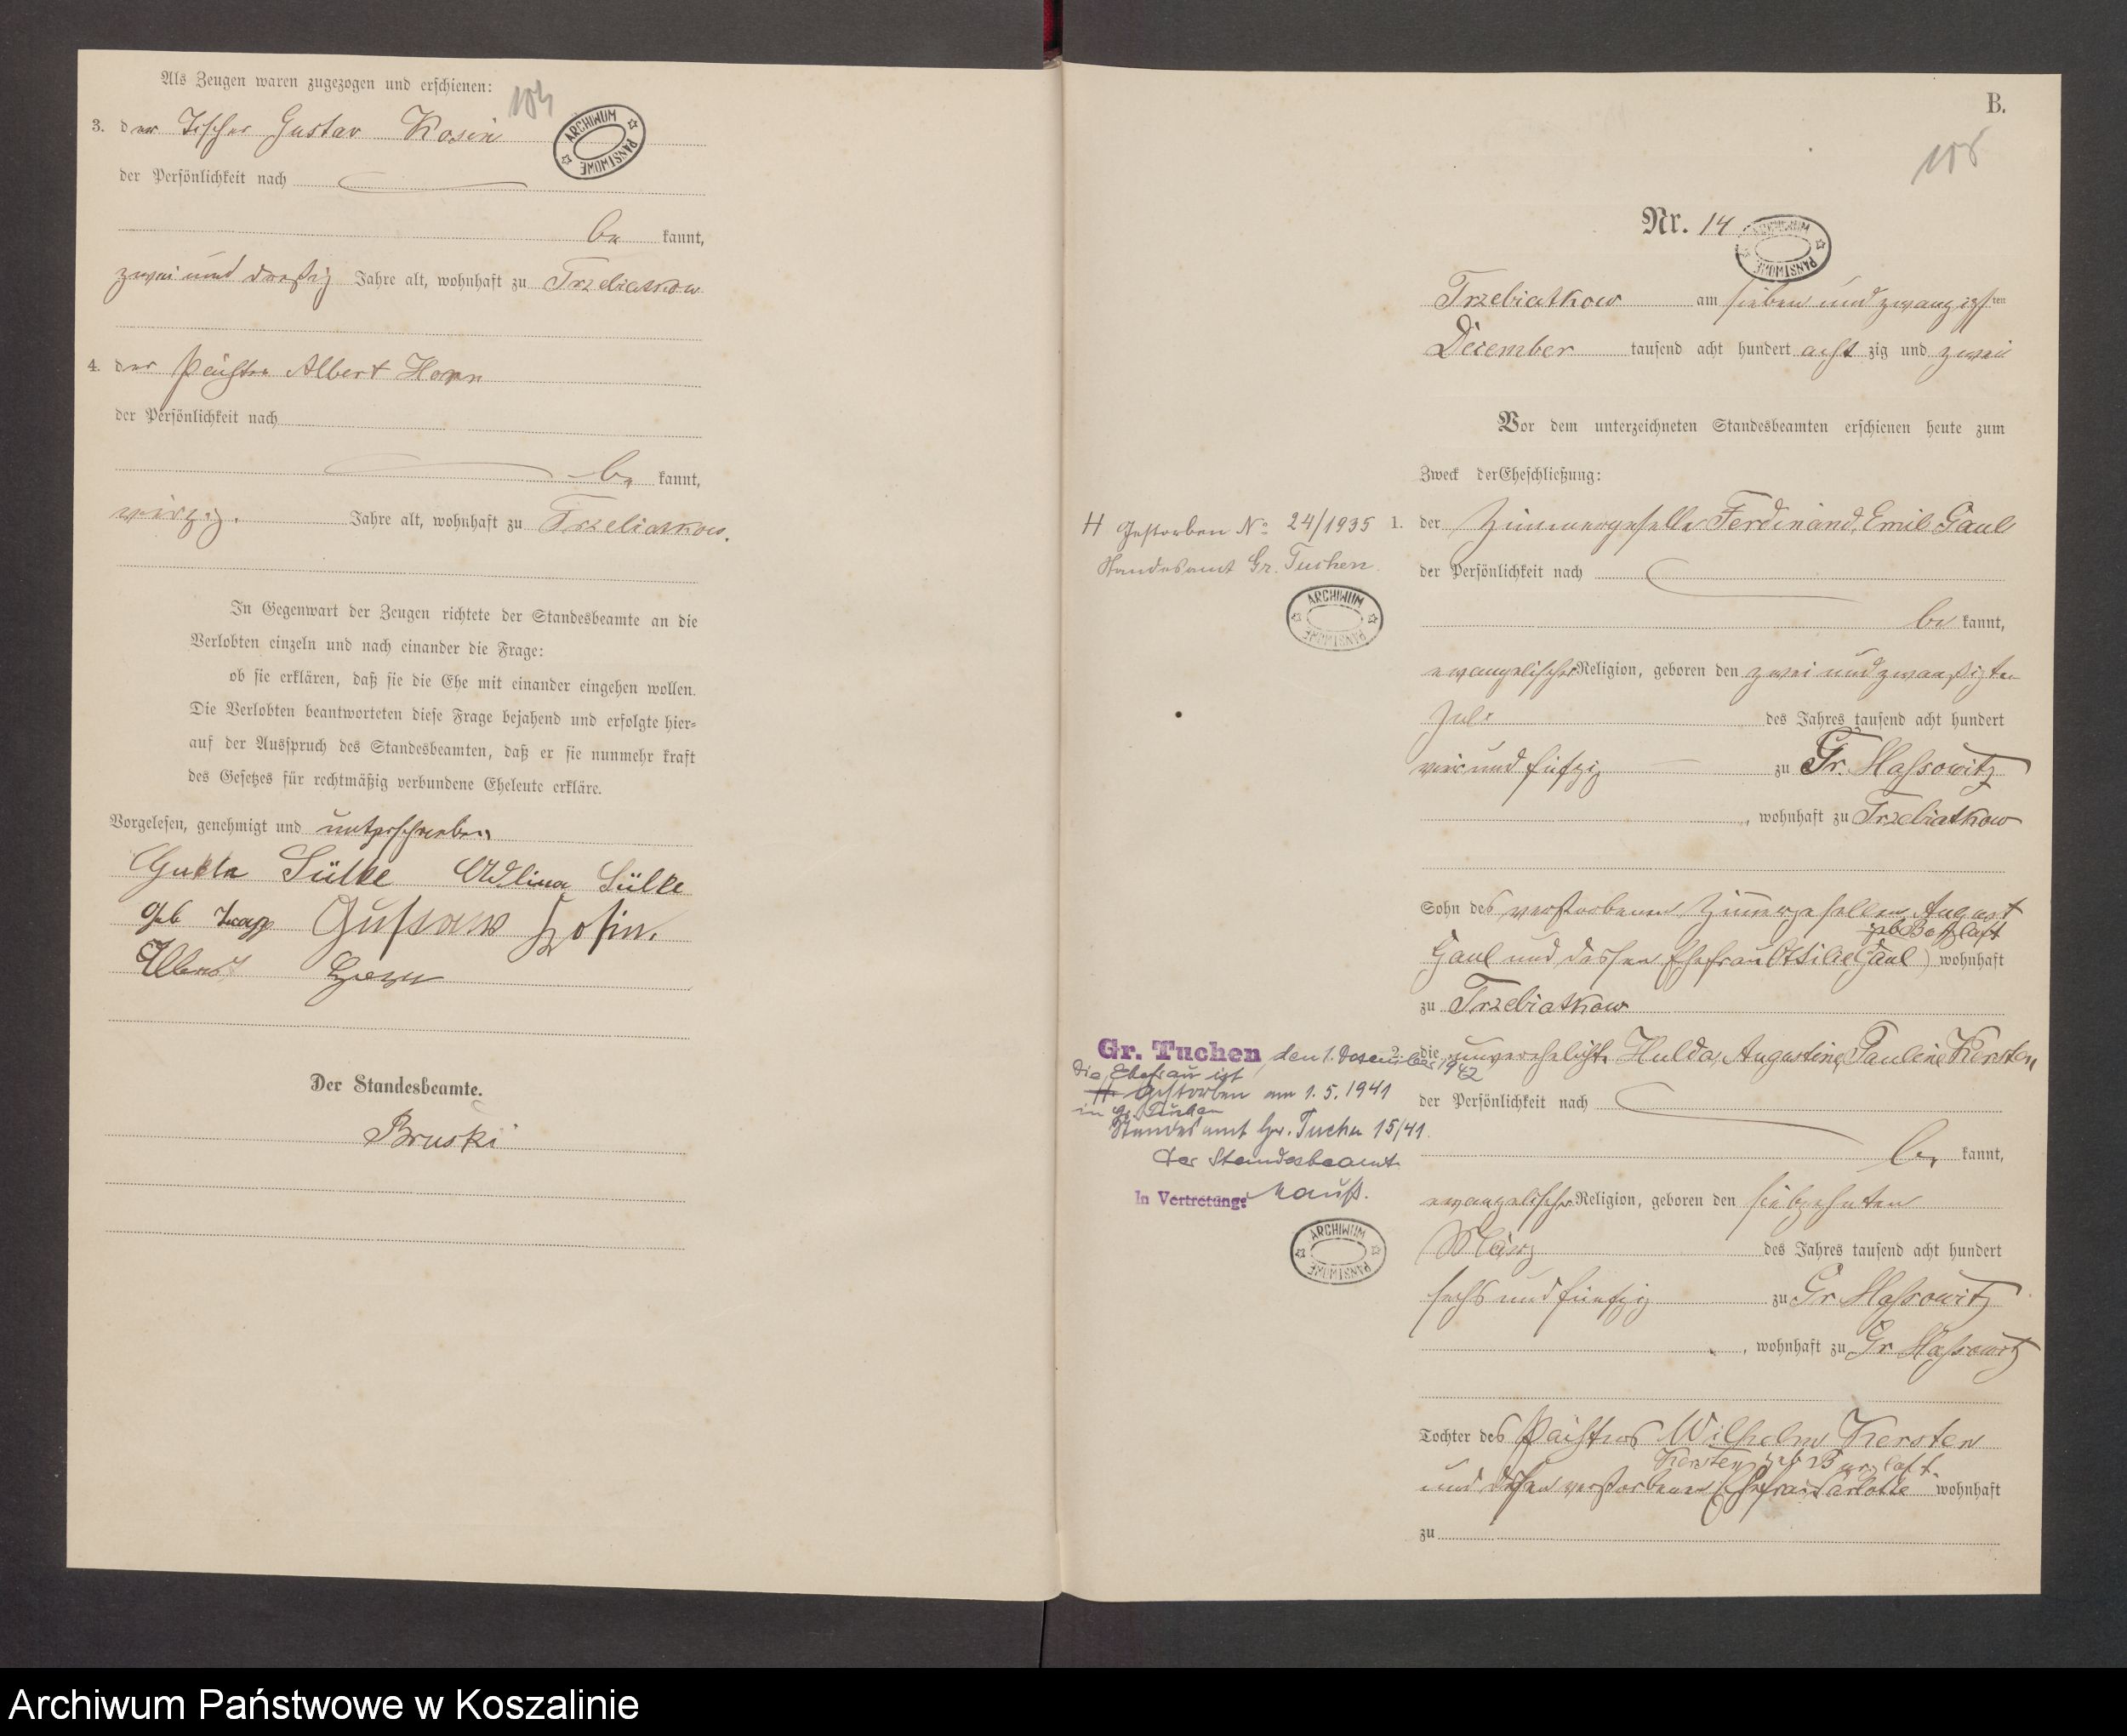 Als Zeugen waren zugezogen und erschienen:
104
3. der Tischer Gustav Kosin
ARCHIWUM PAŃSTWOWE
der Persönlichkeit nach
be kannt,
zwei und dreißig Jahre alt, wohnhaft zu Trzebiatkow
4. der Pächter Albert Horn
der Persönlichkeit nach
be kannt,
vierzig. Jahre alt, wohnhaft zu Trzebiatkow.
In Gegenwart der Zeugen richtete der Standesbeamte an die
Verlobten einzeln und nach einander die Frage:
ob sie erklären, daß sie die Ehe mit einander eingehen wollen.
Die Verlobten beantworteten diese Frage bejahend und erfolgte hier-
auf der Ausspruch des Standesbeamten, daß er sie nunmehr kraft
des Gesetzes für rechtmäßig verbundene Eheleute erkläre.
Vorgelesen, genehmigt und unterschrieben
Sülke Sülke
geb Gustaw Kosin.
Albert Horn
Der Standesbeamte.
Bruski
B.
105
Nr. 14
ARCHIWUM PAŃSTWOWE
Trzebiatkow am sieben und zwanzigsten
December tausend acht hundert acht zig und zwei
Vor dem unterzeichneten Standesbeamten erschienen heute zum
Zweck der Eheschließung:
1. der Zimmergeselle Ferdinand, Emil Gaul
der Persönlichkeit nach
be kannt,
evangelischer Religion, geboren den zwei und zwanzigten
Juli des Jahres tausend acht hundert
vier und fünfzig zu Gr. Massowitz
, wohnhaft zu Trzebiatkow
Sohn des verstorbenen Zimmergesellen August
geb
Gaul und dessen Ehefrau Ottilie Gaul) wohnhaft
zu Trzebiatkow
2. die unverehelichte Hulda, Augustine, Pauline Kersten
der Persönlichkeit nach
be kannt,
evangelischer Religion, geboren den siebzehnten
März des Jahres tausend acht hundert
sechs und fünfzig zu Gr Massowitz
, wohnhaft zu Gr Massowitz
Tochter des Pächters Wilhelm Kersten
Kersten geb
und dessen verstorbenen Ehefrau Carlotte wohnhaft
zu
H Gestorben No 24/1935
Standesamt Gr. Tuchen.
ARCHIWUM PAŃSTWOWE
Gr. Tuchen, den 1. Dezember 1942
Die Ehefrau ist
H. gestorben am 1.5.1941
in Gr. Tuchen
Standesamt Gr. Tuchen 15/41.
Der Standesbeamte
In Vertretung:
ARCHIWUM PAŃSTWOWE
Archiwum Państwowe w Koszalinie